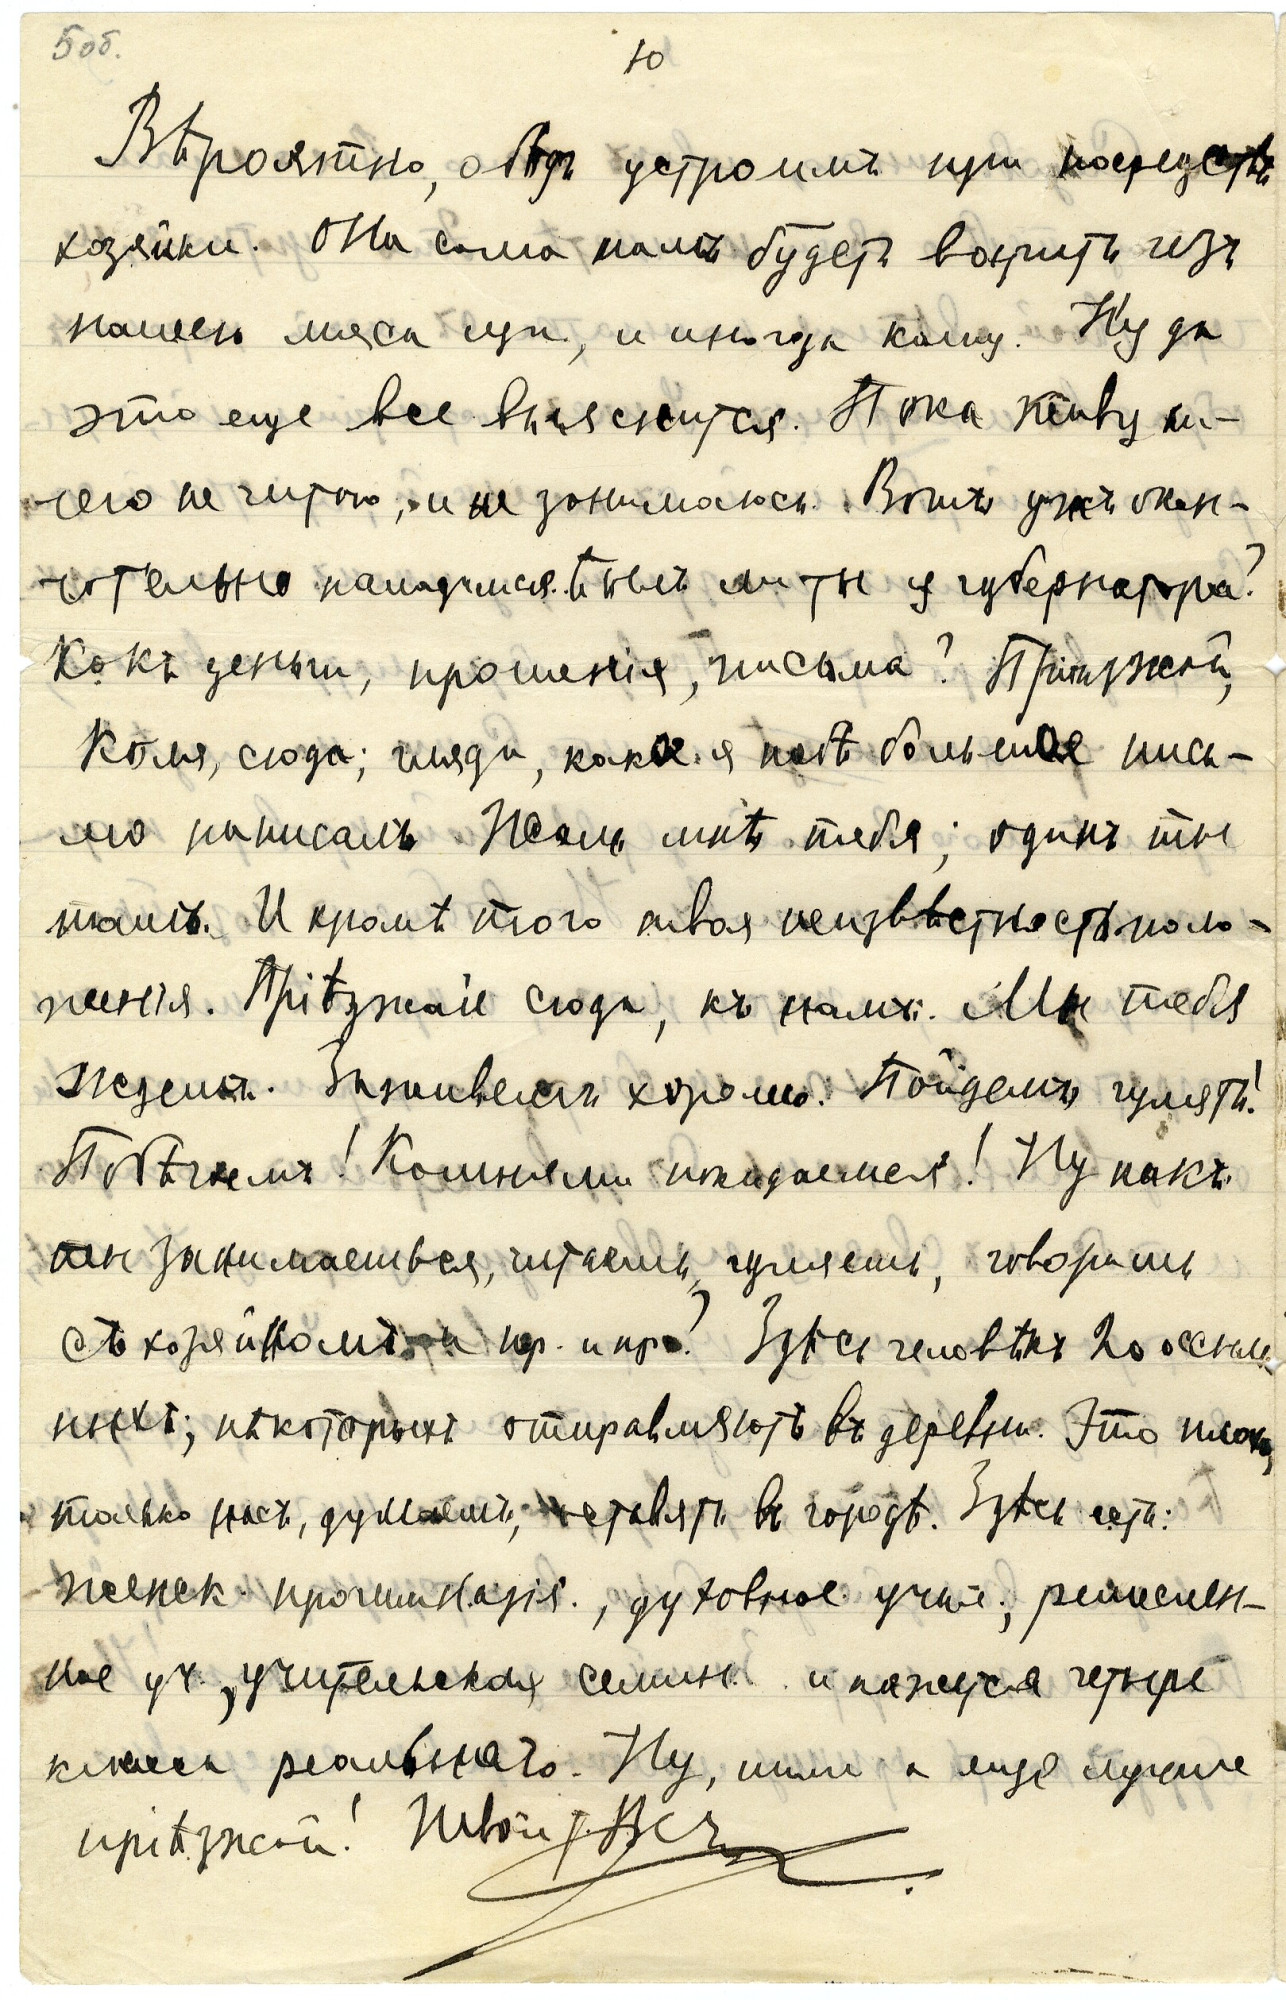 5 об.
10
Вѣроятно, обѣдъ устроимъ при посредствѣ
хозяйки. Она сама намъ будетъ варить изъ
нашего мяса щи, и иногда кашу. Ну да
это еще все выяснится. Пока живу ни-
чего не читаю, и не занимаюсь. Вотъ ужъ окон-
чательно наладимся. Былъ ли ты у губернатора?
Какъ деньги, прошенія, письма? Пріѣзжай,
Коля, сюда; гляди, какое я тебѣ большое пись-
мо написалъ. Жаль мнѣ тебя; одинъ ты
тамъ. И кромѣ того твоя неизвѣстность поло-
женія. Пріѣзжай сюда, къ намъ. Мы тебя
ждемъ. Заживемъ хорошо. Пойдемъ гулять!
Побѣгаемъ! Камнями покидаемся! Ну какъ
ты занимаешься, читаешь, гуляешь, говоришь
съ хозяйкомъ и пр. и пр.? Здѣсь человѣкъ 20 ссыль
ныхъ; нѣкоторыхъ отправляютъ въ деревни. Это плохо,
только насъ, думаемъ, оставятъ въ городѣ. Здѣсь есть:
женск. прогимназія, духовное учил., ремеслен-
ное уч., учительская семин. и кажется четыре
класса реальнаго. Ну, пиши а еще лучше
пріѣзжай! Твой